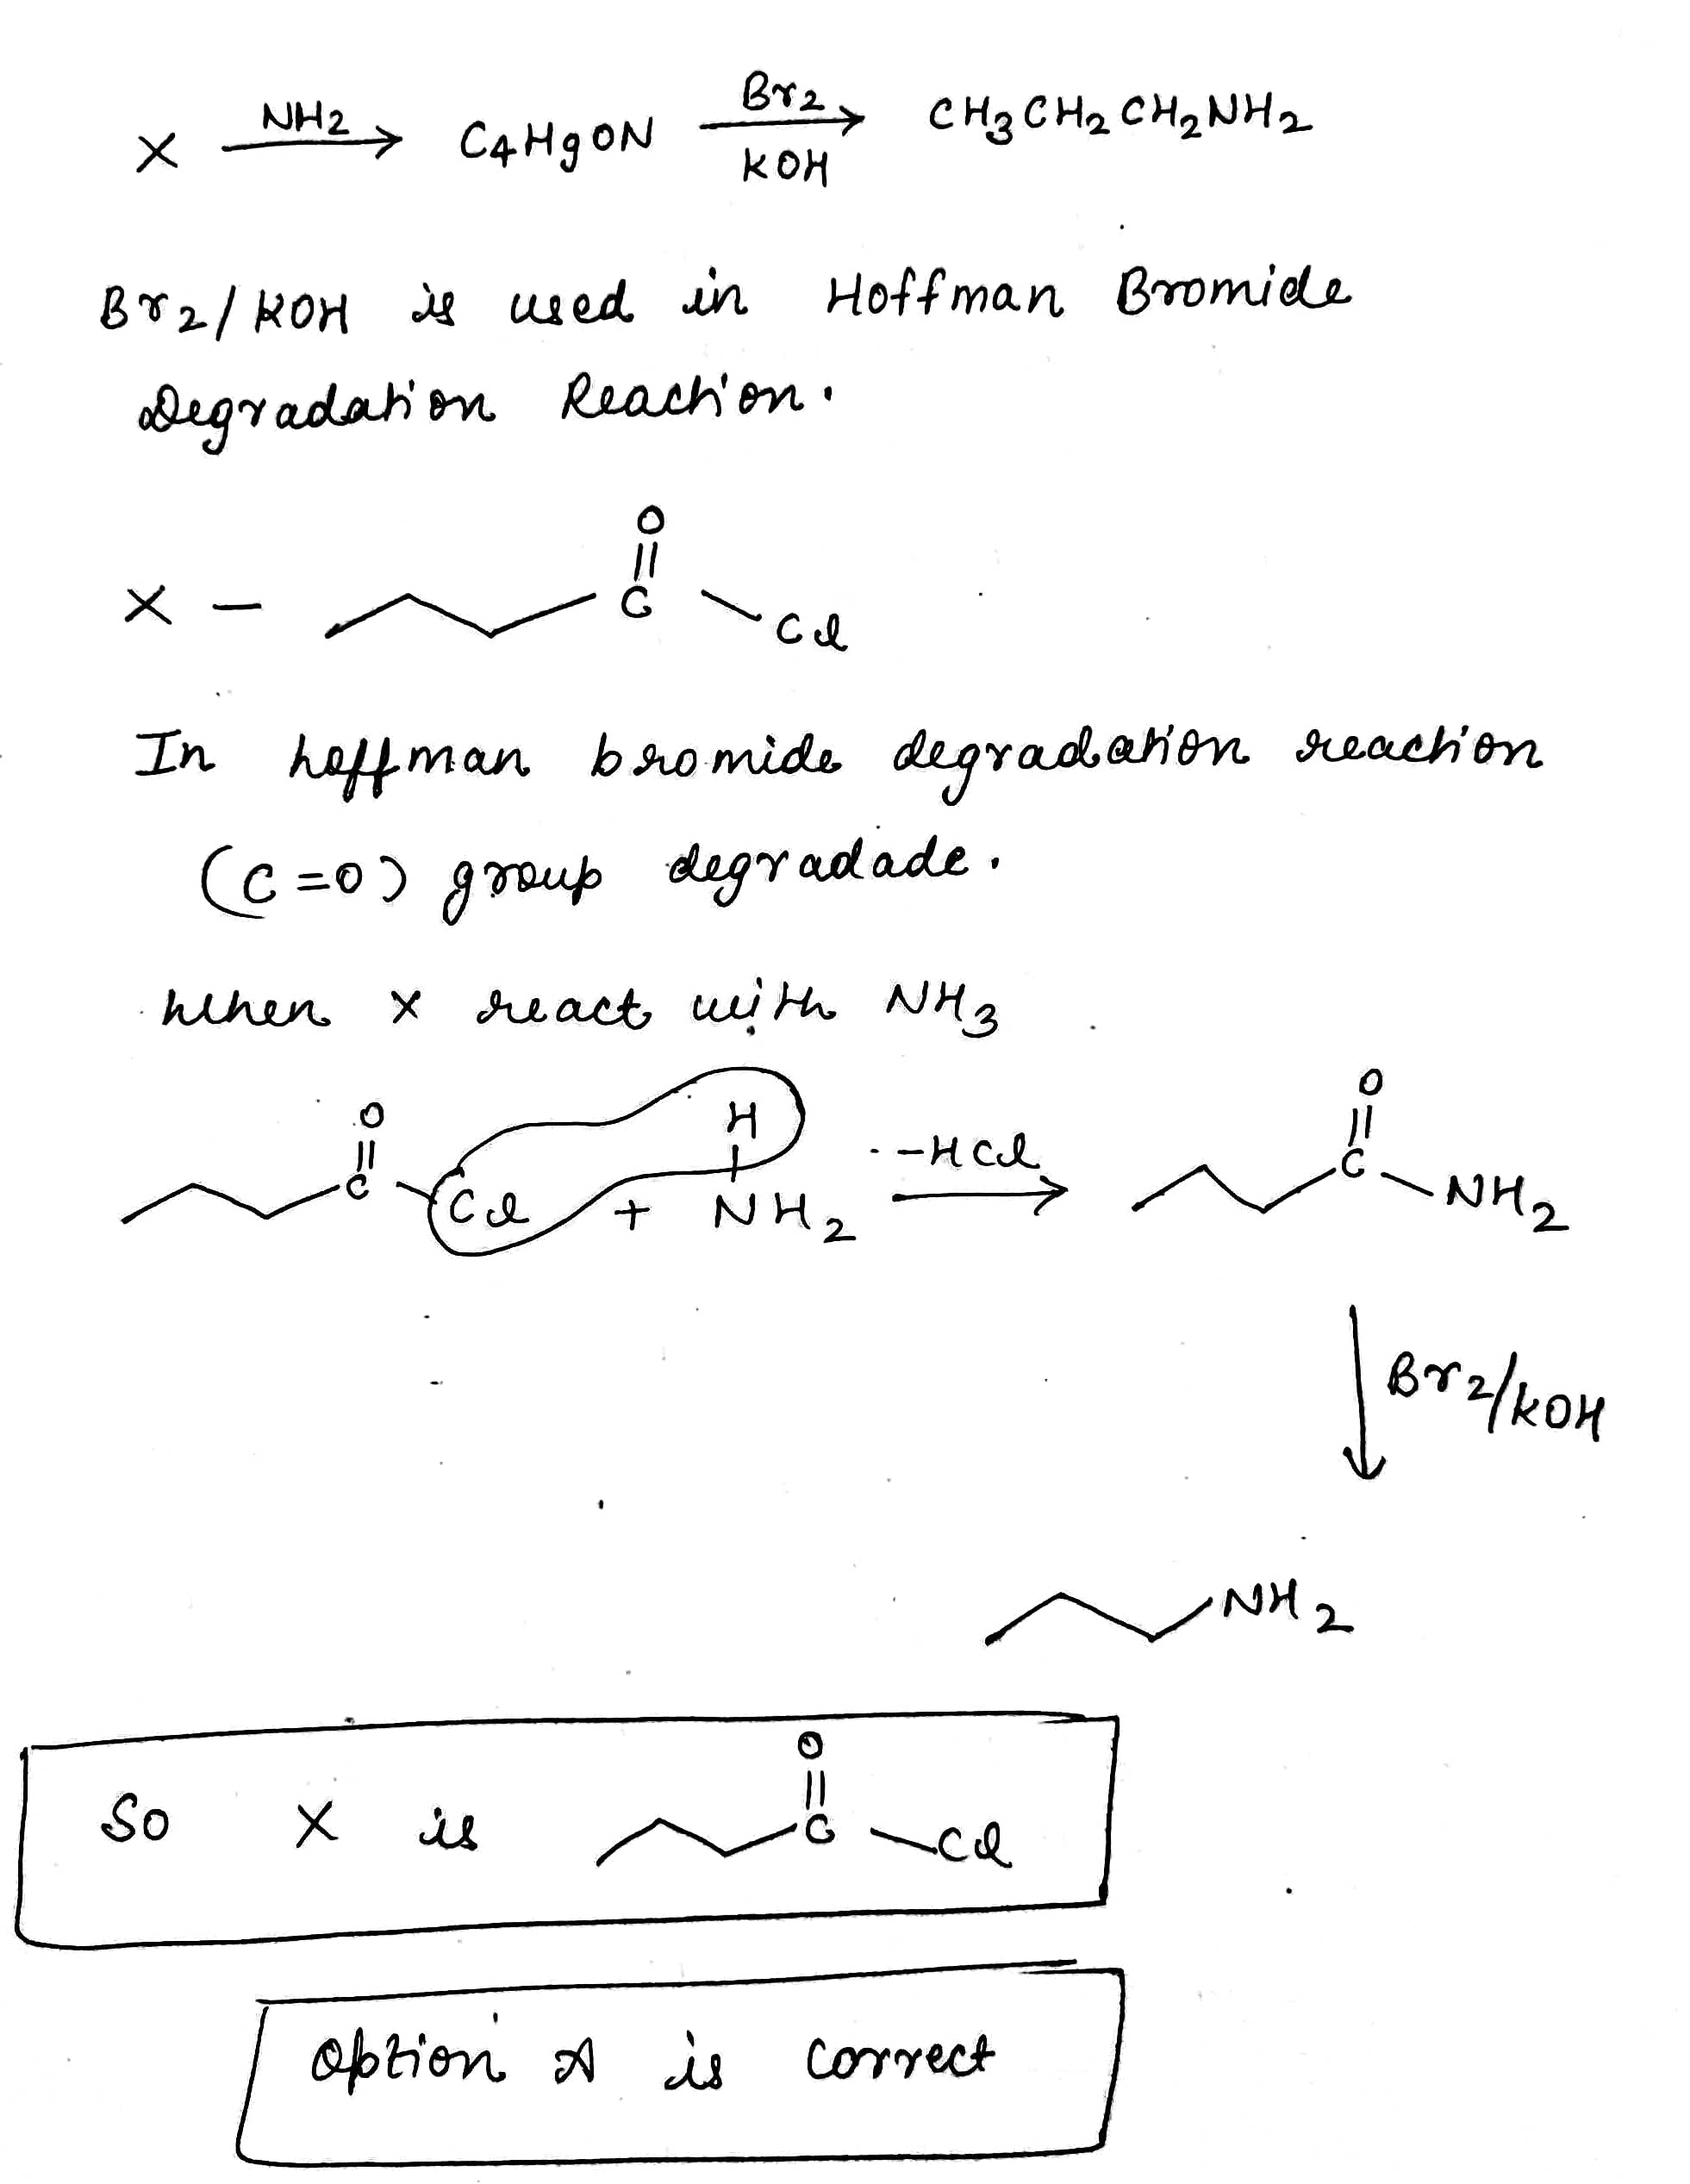 X NH2 → C4H9ON Br2 / KOH → CH3CH2CH2NH2
Br2/KOH is used in Hoffman Bromide
Degradation Reaction.
X - O
C
Cl
In hoffman bromide degradation reaction
(C=O) group degradade.
when X react with NH3
O H -HCl O
C Cl + NH2 → C NH2
Br2/KOH
NH2
O
So X is C Cl
Option A is correct